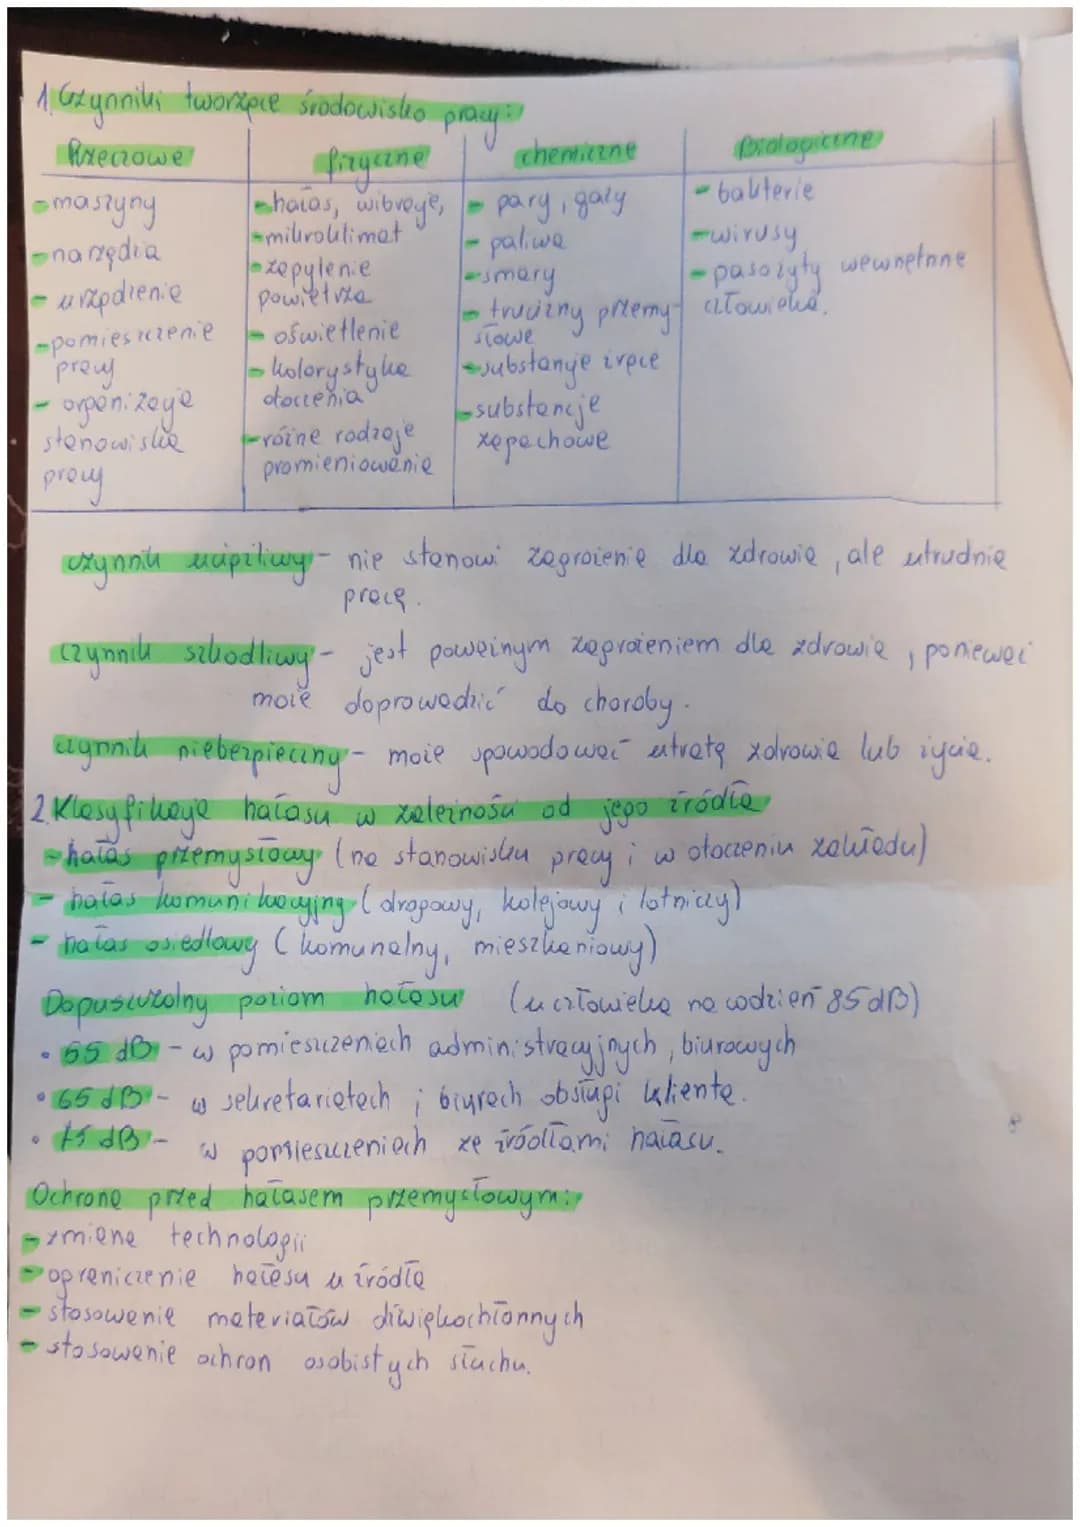 1. Czynniki tworzące środowisko pracy:
Rzeczowe
- maszyny
- narzędzia
- urządzenia
- pomieszczenie
pracy
- organizacja
stanowiska
pracy
fizyczne
- hałas, wibracje,
- mikroklimat
- zapylenie
powietrza
- oświetlenie
- kolorystyka
otoczenia
- różne rodzaje
promieniowania
chemiczne
- pary, gazy
- paliwa
- smary
- trucizny przemy-
słowe
- substancje żrące
- substancje
zapachowe
Biologiczne
- bakterie
- wirusy
- pasożyty wewnętrzne
człowieka.
czynnik uciążliwy - nie stanowi zagrożenia dla zdrowia, ale utrudnia
pracę.
czynnik szkodliwy - jest poważnym zagrożeniem dla zdrowia, ponieważ
może doprowadzić do choroby.
czynnik niebezpieczny - może spowodować utratę zdrowia lub życia.
2. Klasyfikacja hałasu w zależności od jego źródła
- hałas przemysłowy (na stanowisku pracy i w otoczeniu zakładu)
- hałas komunikacyjny (drogowy, kolejowy i lotniczy)
- hałas osiedlowy (komunalny, mieszkaniowy)
Dopuszczalny poziom hałasu (u człowieka na codzień 85 dB)
• 55 dB - w pomieszczeniach administracyjnych, biurowych
• 65 dB - w sekretariatach i biurach obsługi klienta.
• 75 dB - w pomieszczeniach ze źródłami hałasu.
Ochrona przed hałasem przemysłowym:
- zmiana technologii
- ograniczenie hałasu u źródła
- stosowanie materiałów dźwiękochłonnych
- stosowanie ochron osobistych słuchu.